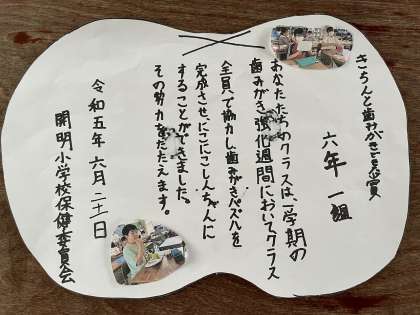 きちんと歯みがきで賞
六年一組
あなたたちのクラスは、一学期の
歯みがき強化週間においてクラス
全員で協力し歯みがきパズルを
完成させ、にこにこしんちゃんに
することができました。
その努力をたたえます。
令和五年六月二十一日
開明小学校保健委員会